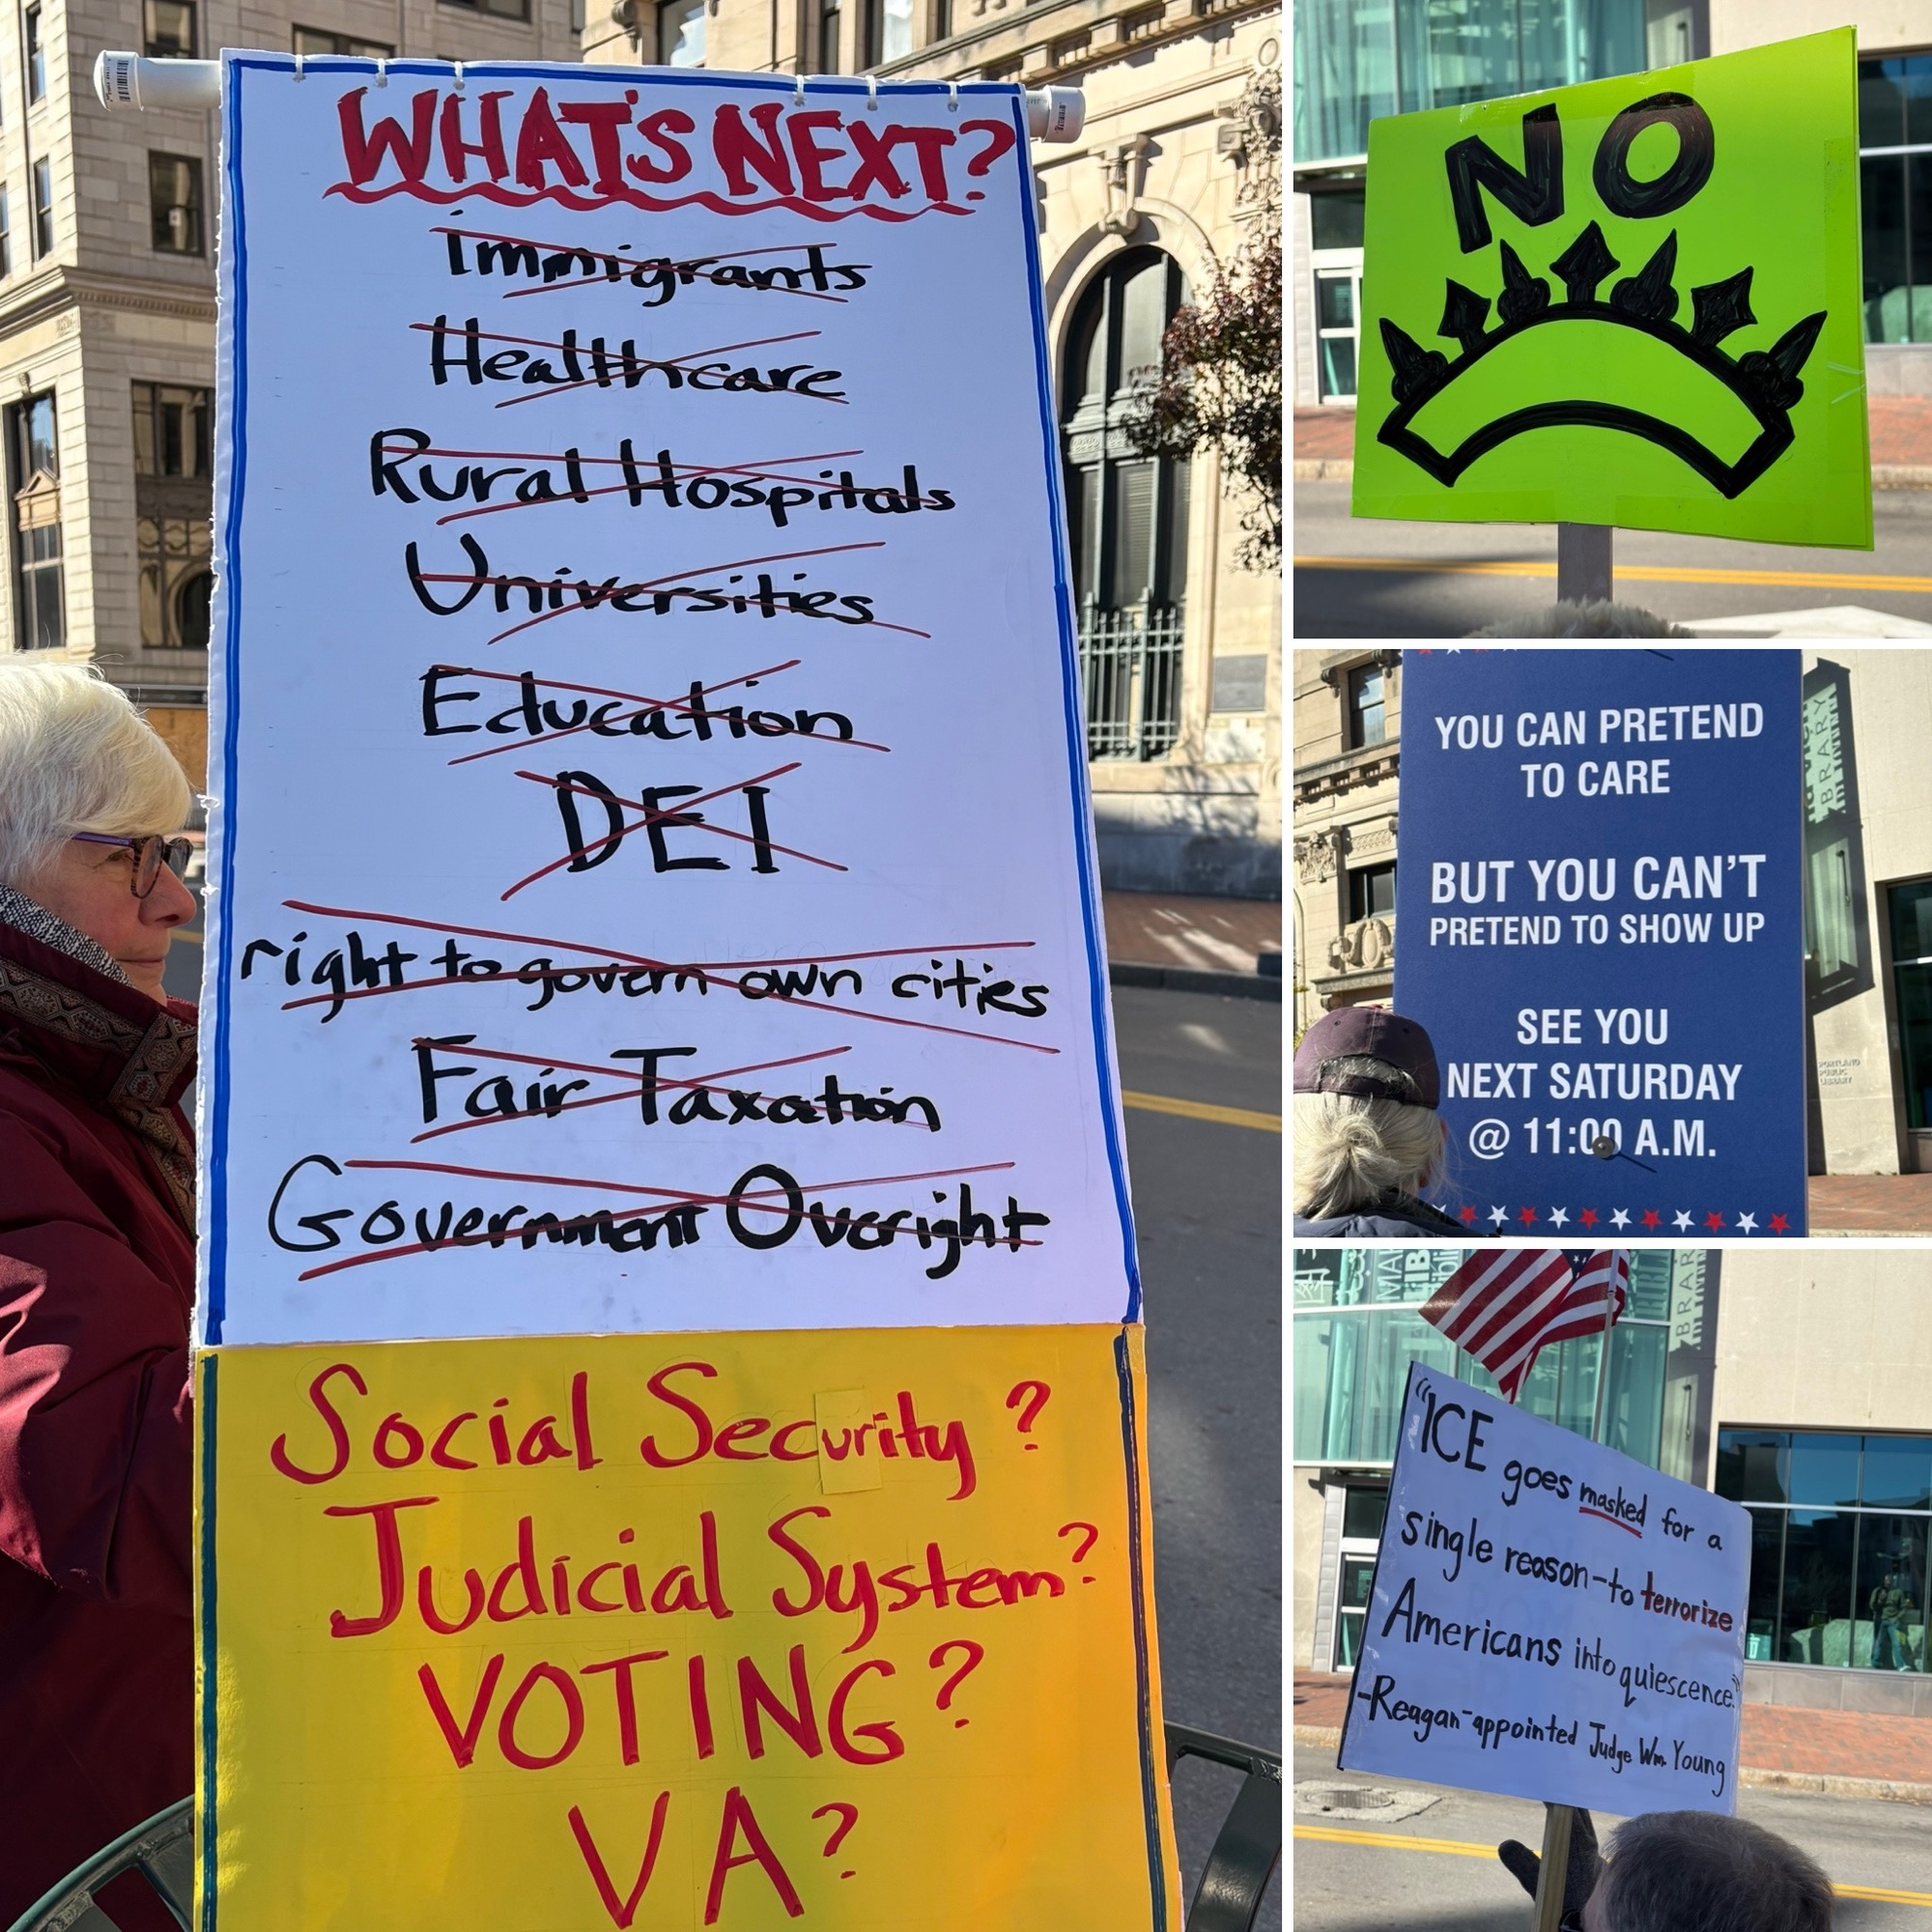 WHAT'S NEXT?
Immigrants
Healthcare
Rural Hospitals
Universities
Education
DEI
right to govern own cities
Fair Taxation
Government Overight
Social Security?
Judicial System?
VOTING?
VA?
NO
YOU CAN PRETEND
TO CARE
BUT YOU CAN'T
PRETEND TO SHOW UP
SEE YOU
NEXT SATURDAY
@ 11:00 A.M.
LIBRARY
PORTLAND
PUBLIC
LIBRARY
"ICE goes masked for a
single reason-to terrorize
Americans into quiescence."
-Reagan-appointed Judge Wm. Young